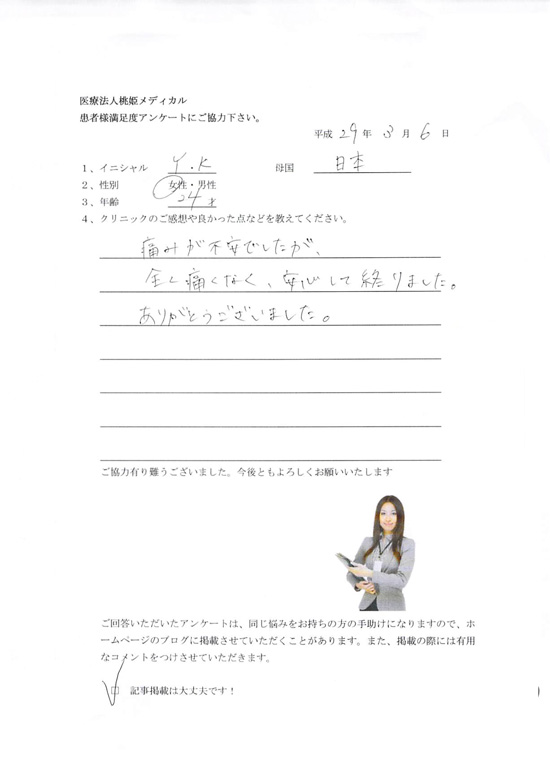 医療法人桃姫メディカル
患者様満足度アンケートにご協力下さい。
平成 29 年 3 月 6 日
1、イニシャル Y.K 母国 日本
2、性別 女性・男性
3、年齢 24才
4、クリニックのご感想や良かった点などを教えてください。
痛みが不安でしたが、
全く痛くなく、安心して終りました。
ありがとうございました。
ご協力有り難うございました。今後ともよろしくお願いいたします
ご回答いただいたアンケートは、同じ悩みをお持ちの方の手助けになりますので、ホ
ームページのブログに掲載させていただくことがあります。また、掲載の際には有用
なコメントをつけさせていただきます。
□ 記事掲載は大丈夫です！